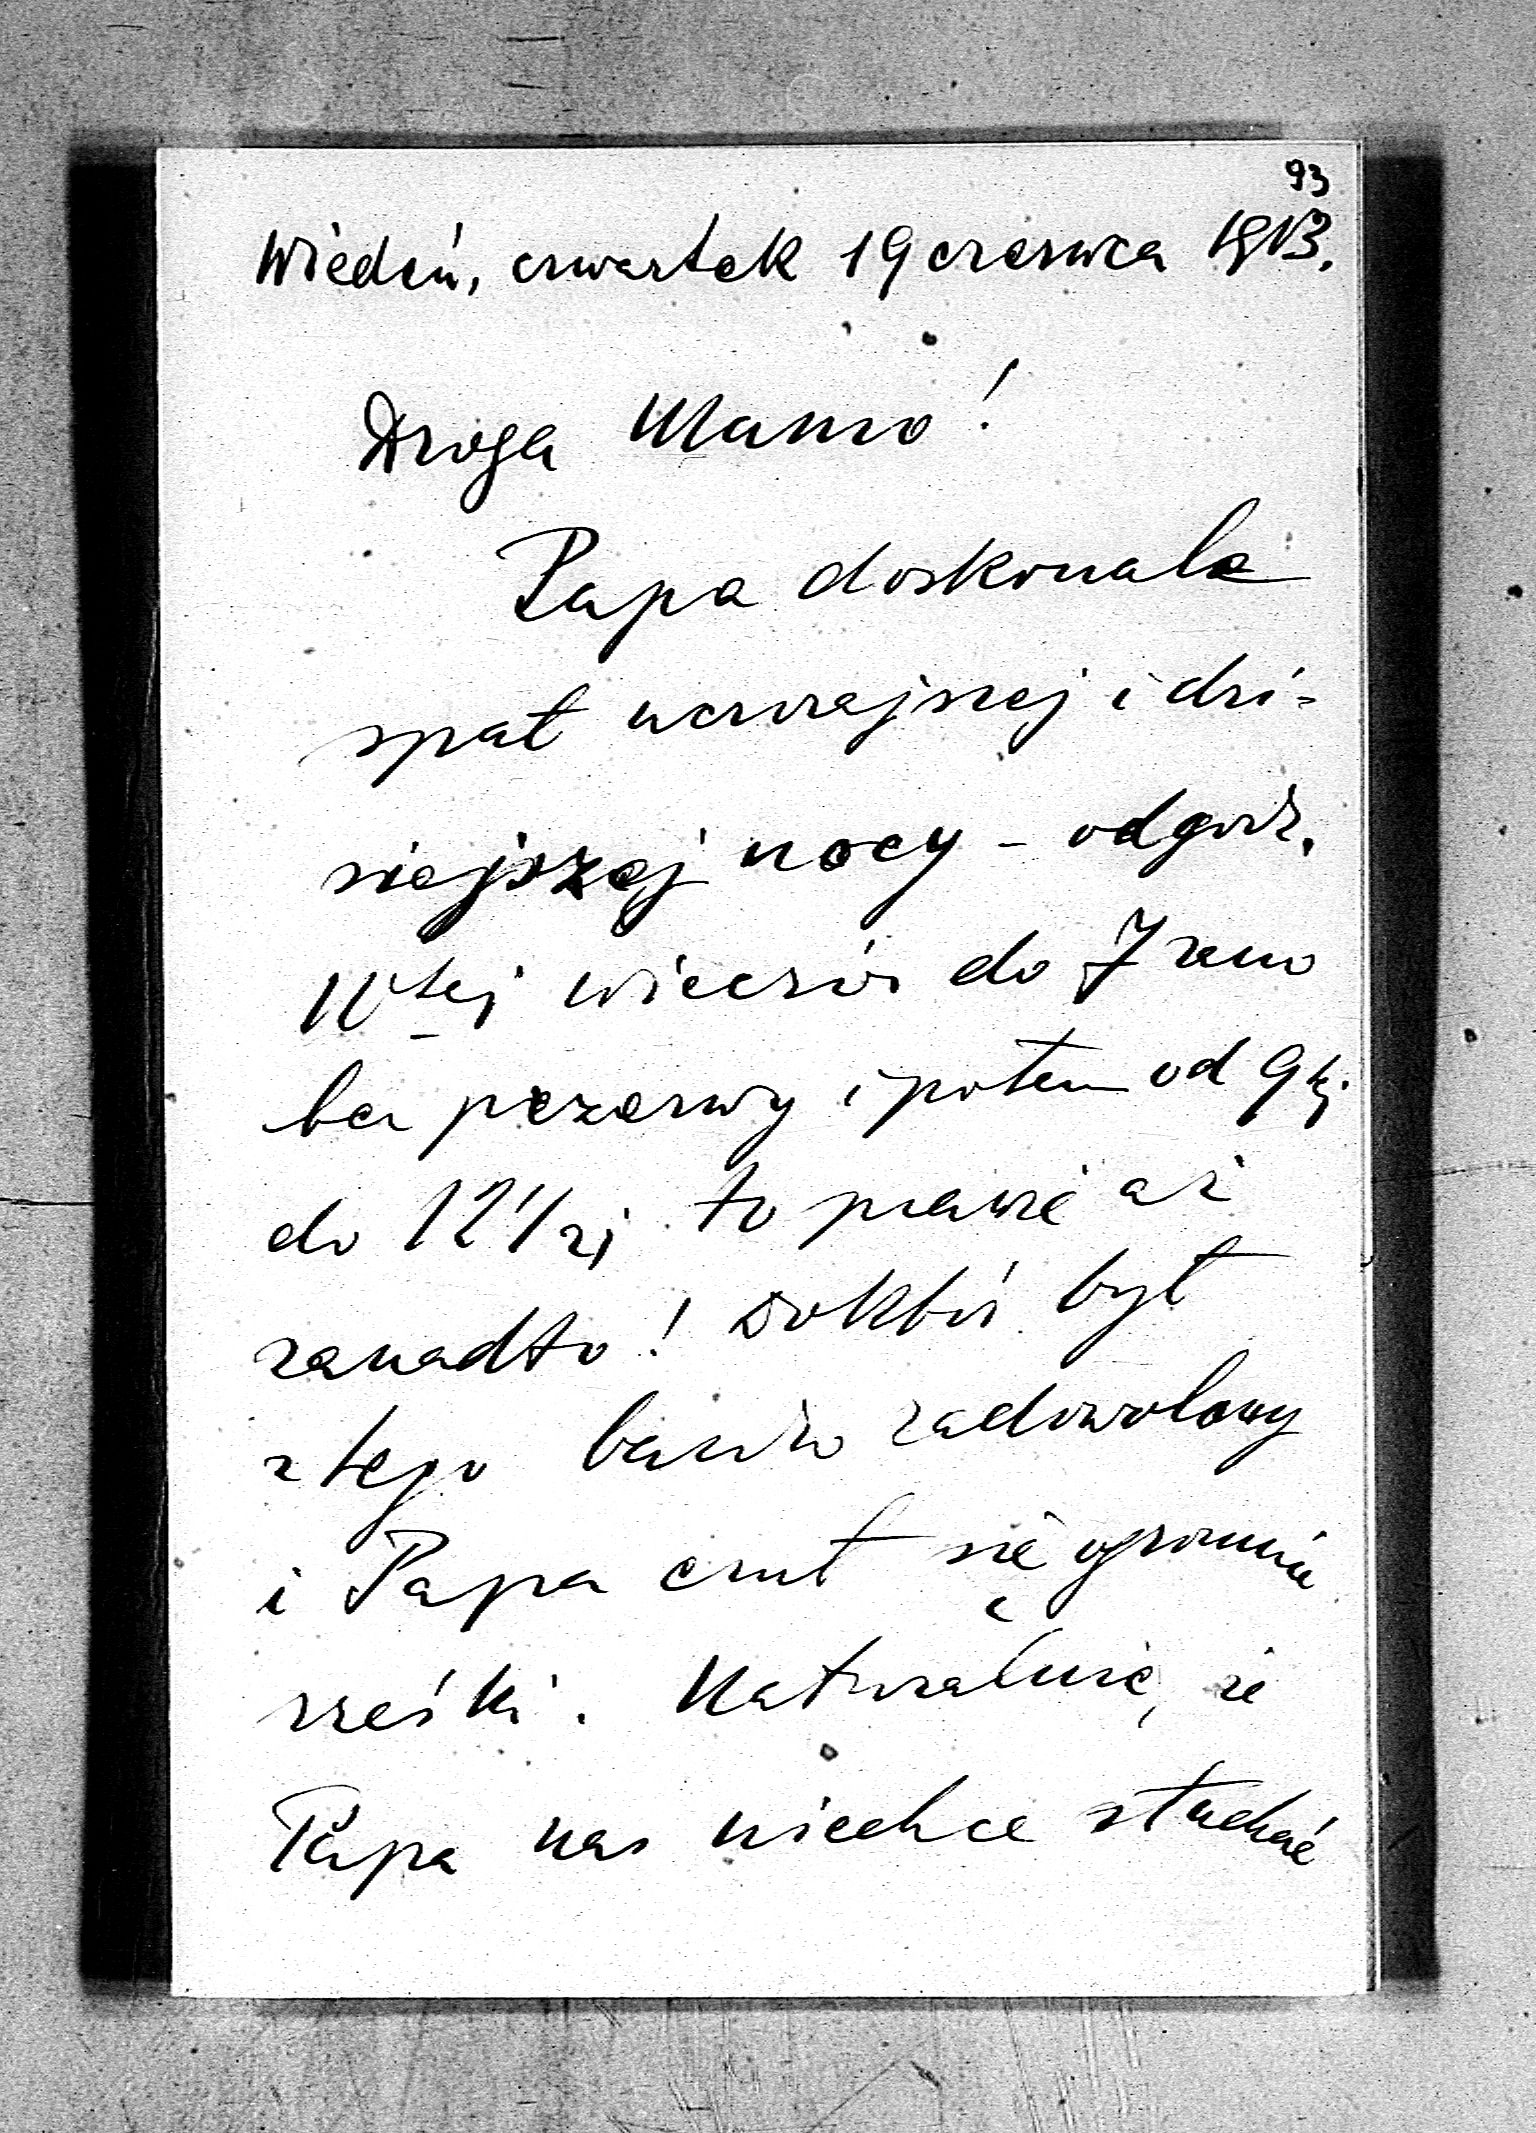 93
Wiedeń, czwartek 19 czerwca 1913.
Droga Mamo!
Papa doskonale
spał wczorajszej i dzi-
siejszej nocy – od godz.
11tej wieczór do 7 rano
bez przerwy i potem od 9tej
do 12 1/2j to prawie aż
zanadto! Doktór był
z tego bardzo zadowolony
i Papa czuł się ogromnie
rześki. Naturalnie, że
Papa nas niechce słuchać